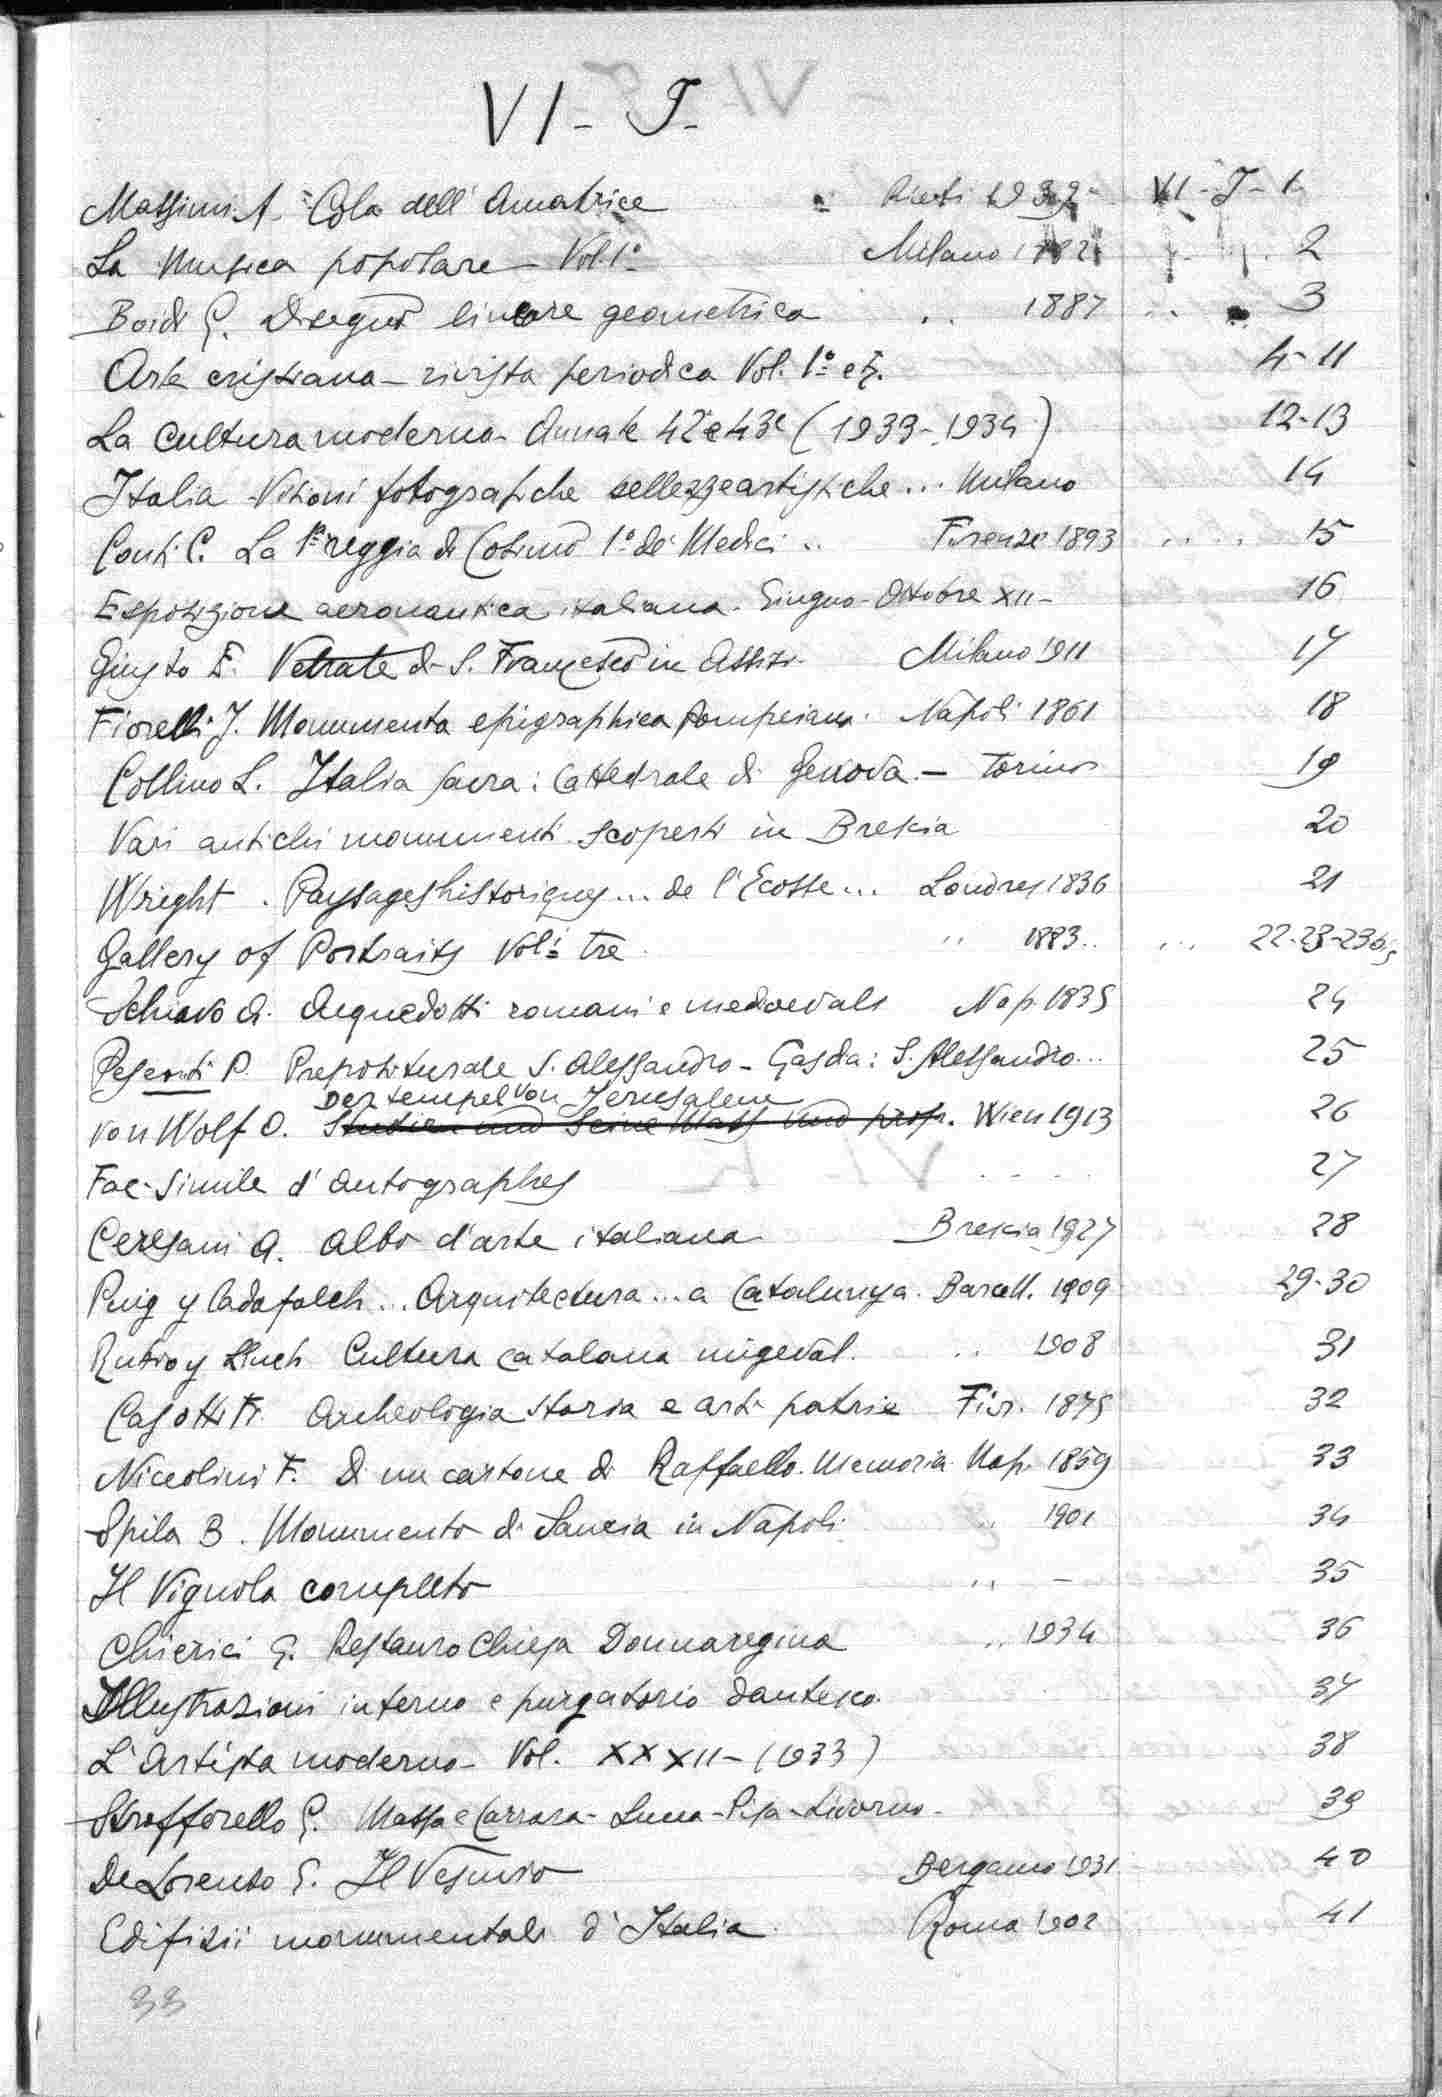 VI - J -
Massimi A. - Cola dell' Amatrice " Rieti 1932 - VI - J - 1
La musica popolare - Vol. 1º Milano 1882 " " 2
Boidi G. Disegno lineare geometrica .. 1887 .. " 3
Arte cristiana - rivista periodica Vol. 1º e 4-11
La Cultura moderna - Annate 42 e 43ª (1933-1934) 12-13
Italia - Visioni fotografiche bellezze artistiche ... Milano 14
Conti C. La 1ª reggia di Cosimo 1º de' Medici .. Firenze 1893 .... 15
Esposizione aeronautica italiana. Giugno-Ottobre XII - 16
Giusto E. Vetrate di S. Francesco in Assisi. Milano 1911 17
Fiorelli J. Monumenta epigraphica pompeiana. Napoli 1861 18
Collino L. Italia sacra: Cattedrale di Genova. - Torino 19
Vari antichi monumenti scoperti in Brescia 20
Wright. Paysages historiques ... de l'Ecosse ... Londres 1836 21
Gallery of Portraits Vol.i tre " 1883.. ... 22-23-23bis
Schiavo A. Acquedotti romani e medioevali Nap. 1935 24
Pesenti P. Prepositurale S. Alessandro - Gasda: S. Alessandro... 25
Der tempel von Jerusalem
von Wolf O. Studien und Seine Mass und prop. Wien 1913 26
Fac-simile d'autographes ..... 27
Ceresani A. Albo d'arte italiana Brescia 1927 28
Puig y Cadafalch ... Arquitectura ... a Catalunya. Barcell. 1909 29-30
Rubio y Lluch Cultura catalana migeval. .. 1908 31
Casotti F. Archeologia storia e arti patrie Fir. 1875 32
Niccolini F. Di un cartone di Raffaello. Memoria Nap. 1859 33
Spila B. Monumento di Sancia in Napoli " 1901 34
Il Vignola completo " - 35
Chierici G. Restauro Chiesa Donnaregina " 1934 36
Illustrazioni inferno e purgatorio dantesco. 37
L'Artista moderno - Vol. XXXII - (1933) 38
Strafforello G. Massa e Carrara - Lucca - Pisa - Livorno - 39
De Lorenzo G. Il Vesuvio Bergamo 1931 40
Edifizii monumentali d'Italia. Roma 1902 41
33